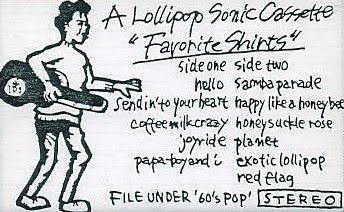 A Lollipop Sonic Cassette
"Favorite Shirts"
side one side two
hello samba parade
send in' to your heart happy like a honey bee
coffee milk crazy honeysuckle rose
joyride planet
papa-boy and i exotic lollipop
red flag
FILE UNDER '60's POP' STEREO